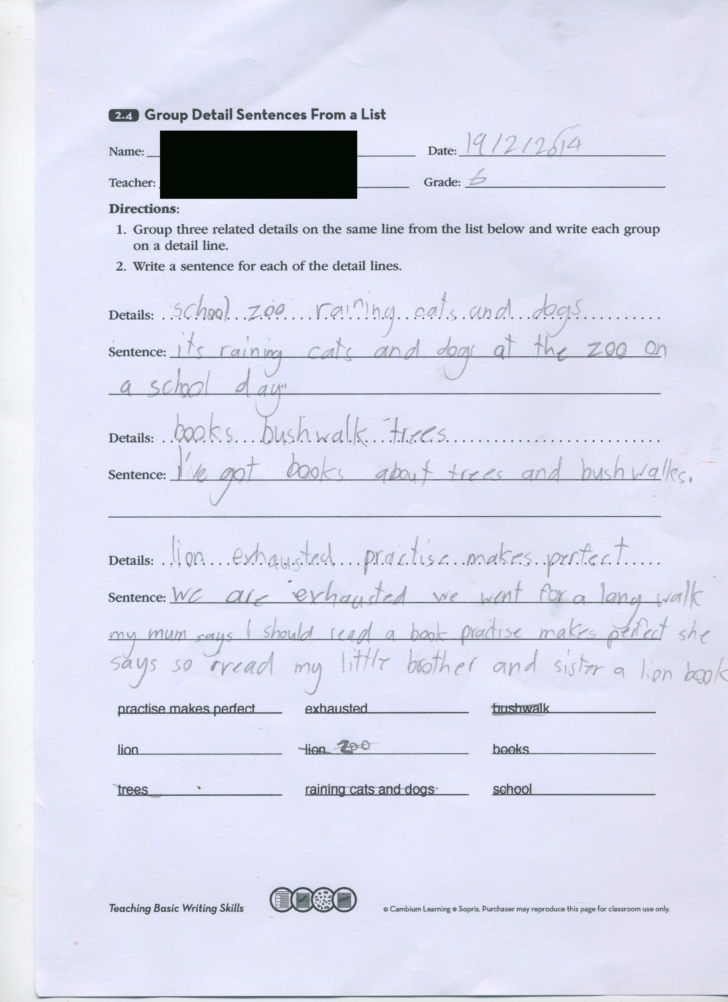 2.4 Group Detail Sentences From a List
Name: Date: 19/2/2014
Teacher: Grade: 6
Directions:
1. Group three related details on the same line from the list below and write each group
on a detail line.
2. Write a sentence for each of the detail lines.
Details: school zoo raining cats and dogs
Sentence: its raining cats and dogs at the zoo on
a school day
Details: books bushwalk trees
Sentence: I've got books about trees and bushwalks.
Details: lion exhausted practise makes perfect
Sentence: we are exhausted we went for a long walk
my mum says I should read a book practise makes perfect she
says so read my little brother and sister a lion book
practise makes perfect exhausted bushwalk
lion lion zoo books
trees raining cats and dogs school
Teaching Basic Writing Skills © Cambium Learning • Sopris. Purchaser may reproduce this page for classroom use only.